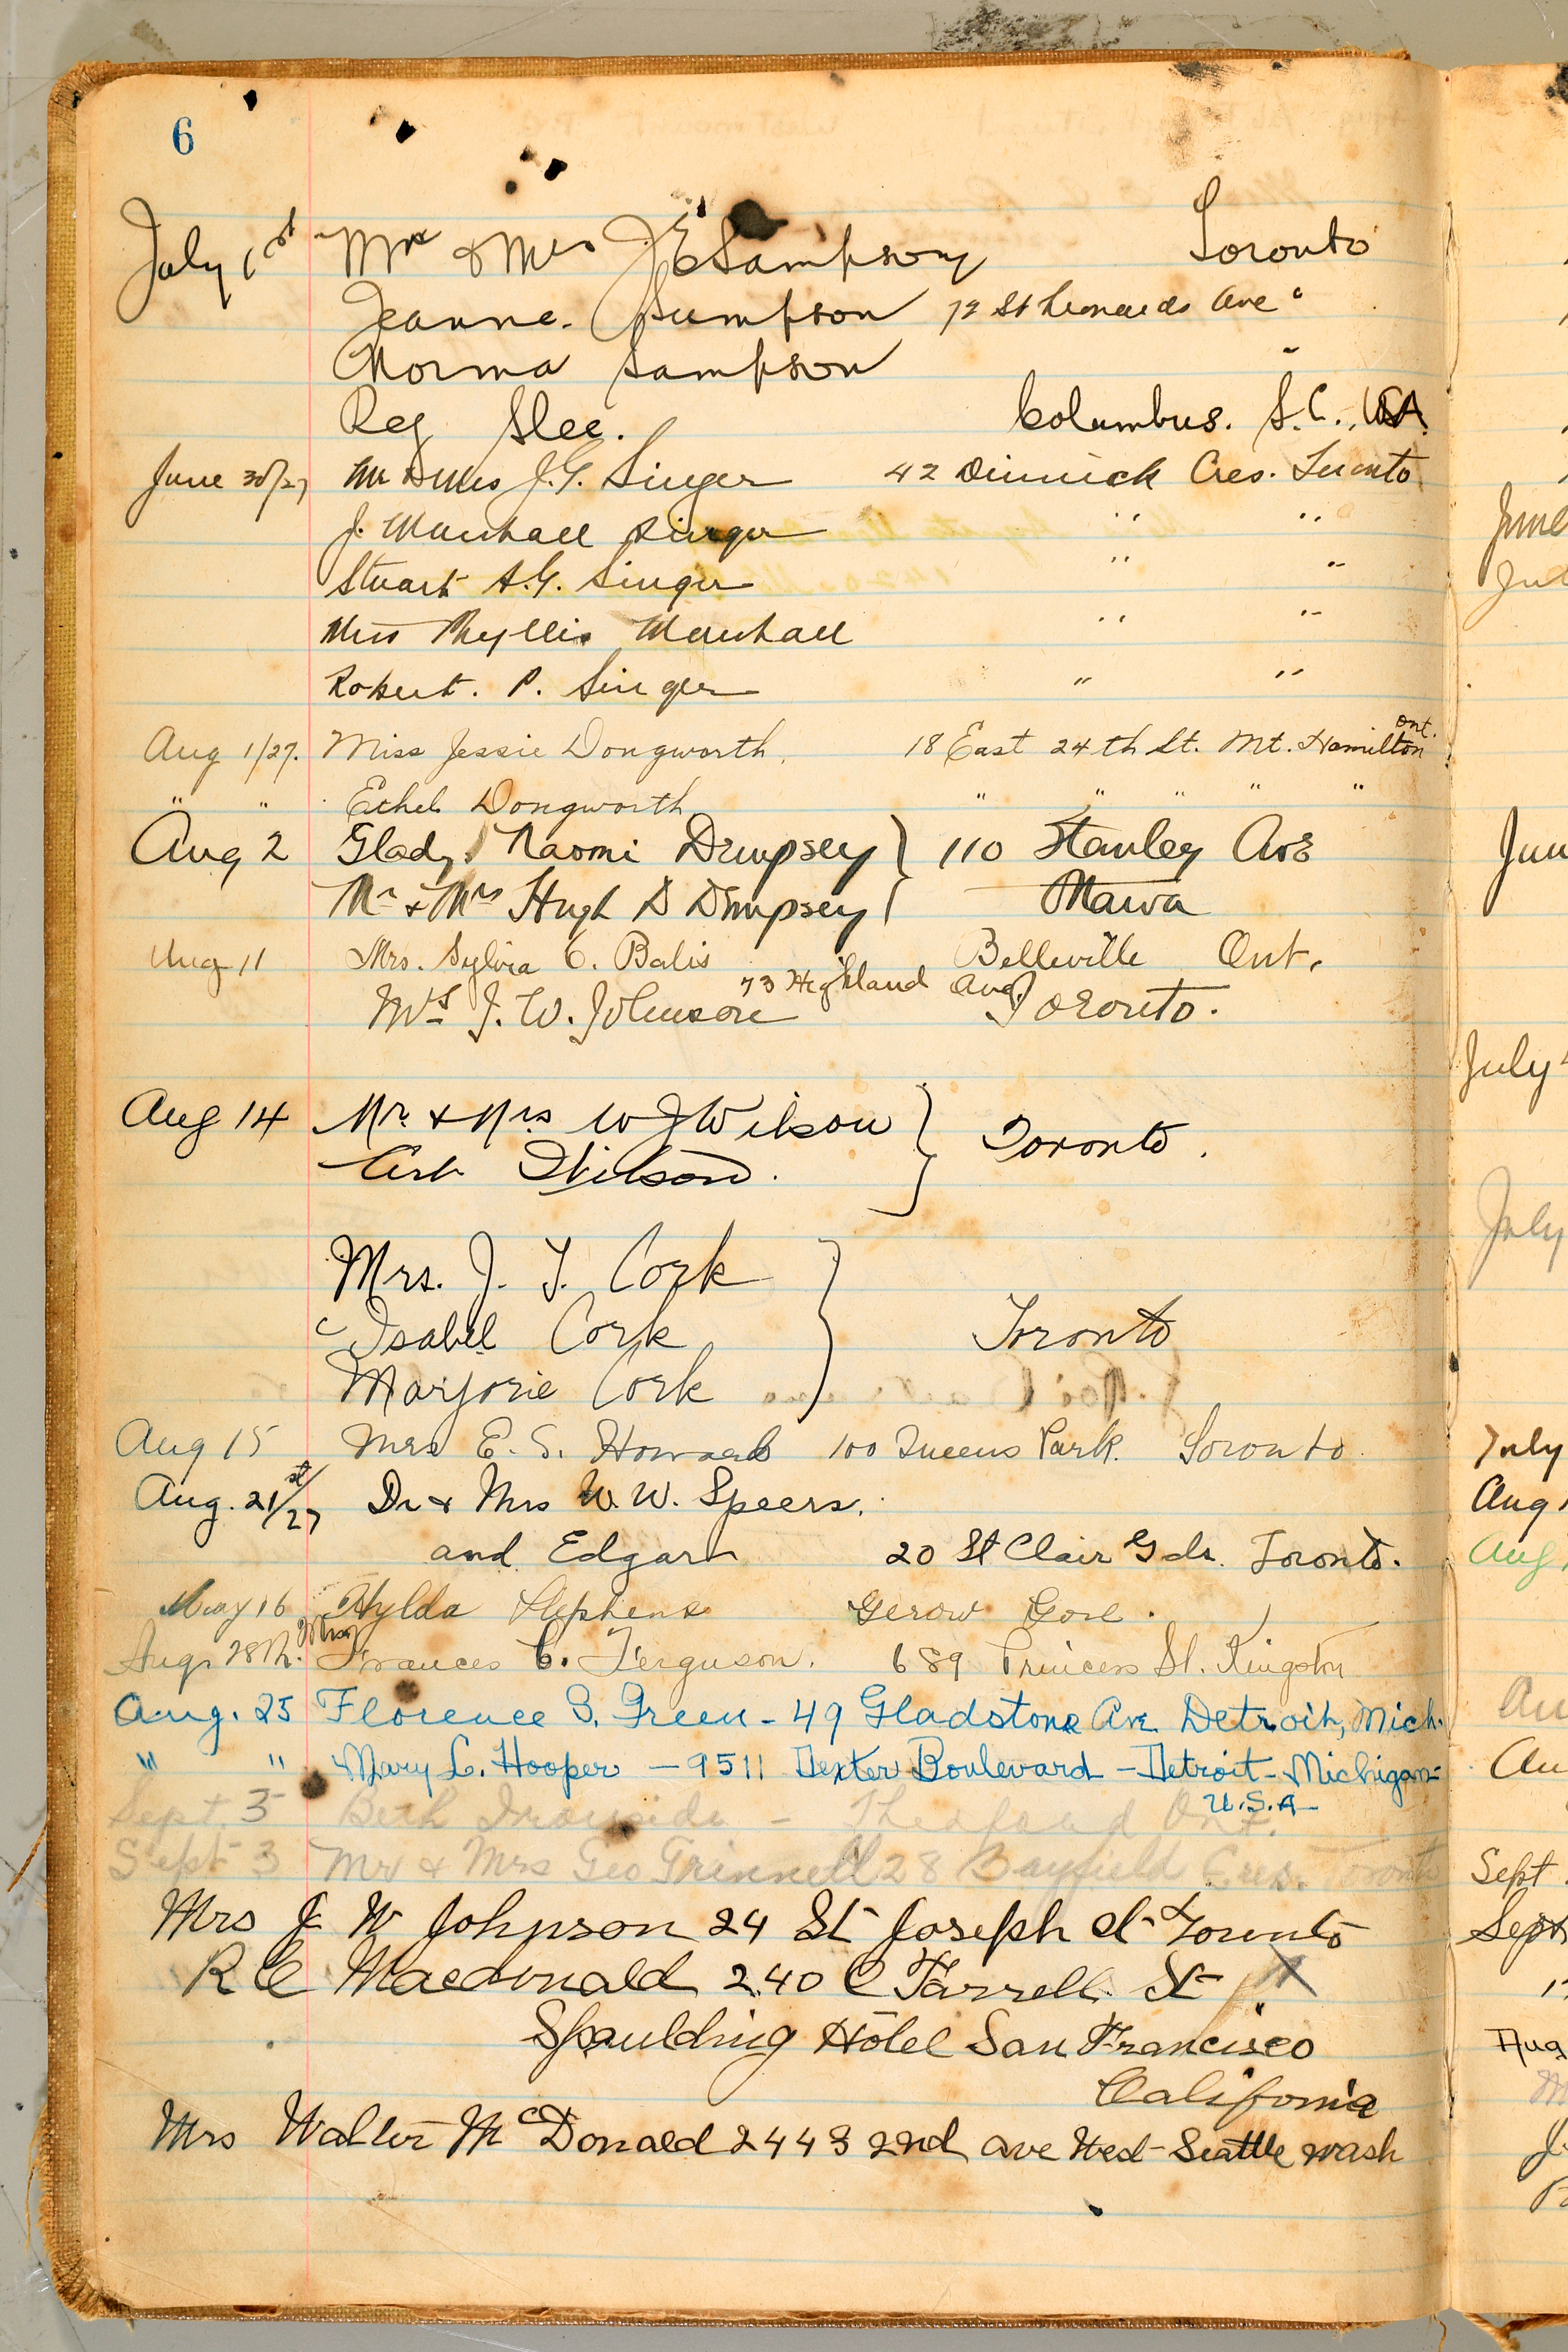 6
July 1st Mr & Mrs J E Sampson Toronto
Jeanne. Sampson 72 St Leonards Ave "
Norma Sampson "
Reg Slee. Columbus. S.C., USA
June 30/27 Mr & Mrs J.G. Singer 42 Dinnick Cres. Toronto
J. Marshall Singer " "
Stuart A.G. Singer " "
Miss Phyllis Marshall " "
Robert. P. Singer " "
Aug 1/27. Miss Jessie Dongworth, 18 East 24th St. Mt. Hamilton Ont.
" " Ethel Dongworth " " " " "
Aug 2 Gladys Naomi Dempsey } 110 Stanley Ave
Mr & Mrs Hugh D Dempsey Ottawa
Aug 11 Mrs. Sylvia C. Balis Belleville Ont.
Mrs J. W. Johnson 73 Highland Ave Toronto.
Aug 14 Mr & Mrs W J Wilson } Toronto.
Art Wilson.
Mrs. J. T. Cork
Isabel Cork } Toronto
Marjorie Cork
Aug 15 Mrs E. S. Howard 100 Queens Park. Toronto.
Aug. 21st/27 Dr & Mrs W. W. Speers.
and Edgar 20 St Clair Gds. Toronto.
May 16 Hylda Stephens Gerow Gore.
Aug. 28th. Frances C. Ferguson. 689 Princess St. Kingston
Aug. 25 Florence S. Green - 49 Gladstone Ave Detroit, Mich.
" " Mary L. Hooper - 9511 Dexter Boulevard - Detroit - Michigan-
U.S.A-
Sept. 3 Beth Ironside - Thedford Ont.
Sept 3 Mr & Mrs Geo Grinnell 28 Bayfield Cres. Toronto
Mrs J W Johnson 24 St Joseph St Toronto
R C Macdonald 240 O Farrell St
Spaulding Hotel San Francisco
California
Mrs Walter McDonald 2443 2nd ave West Seattle wash